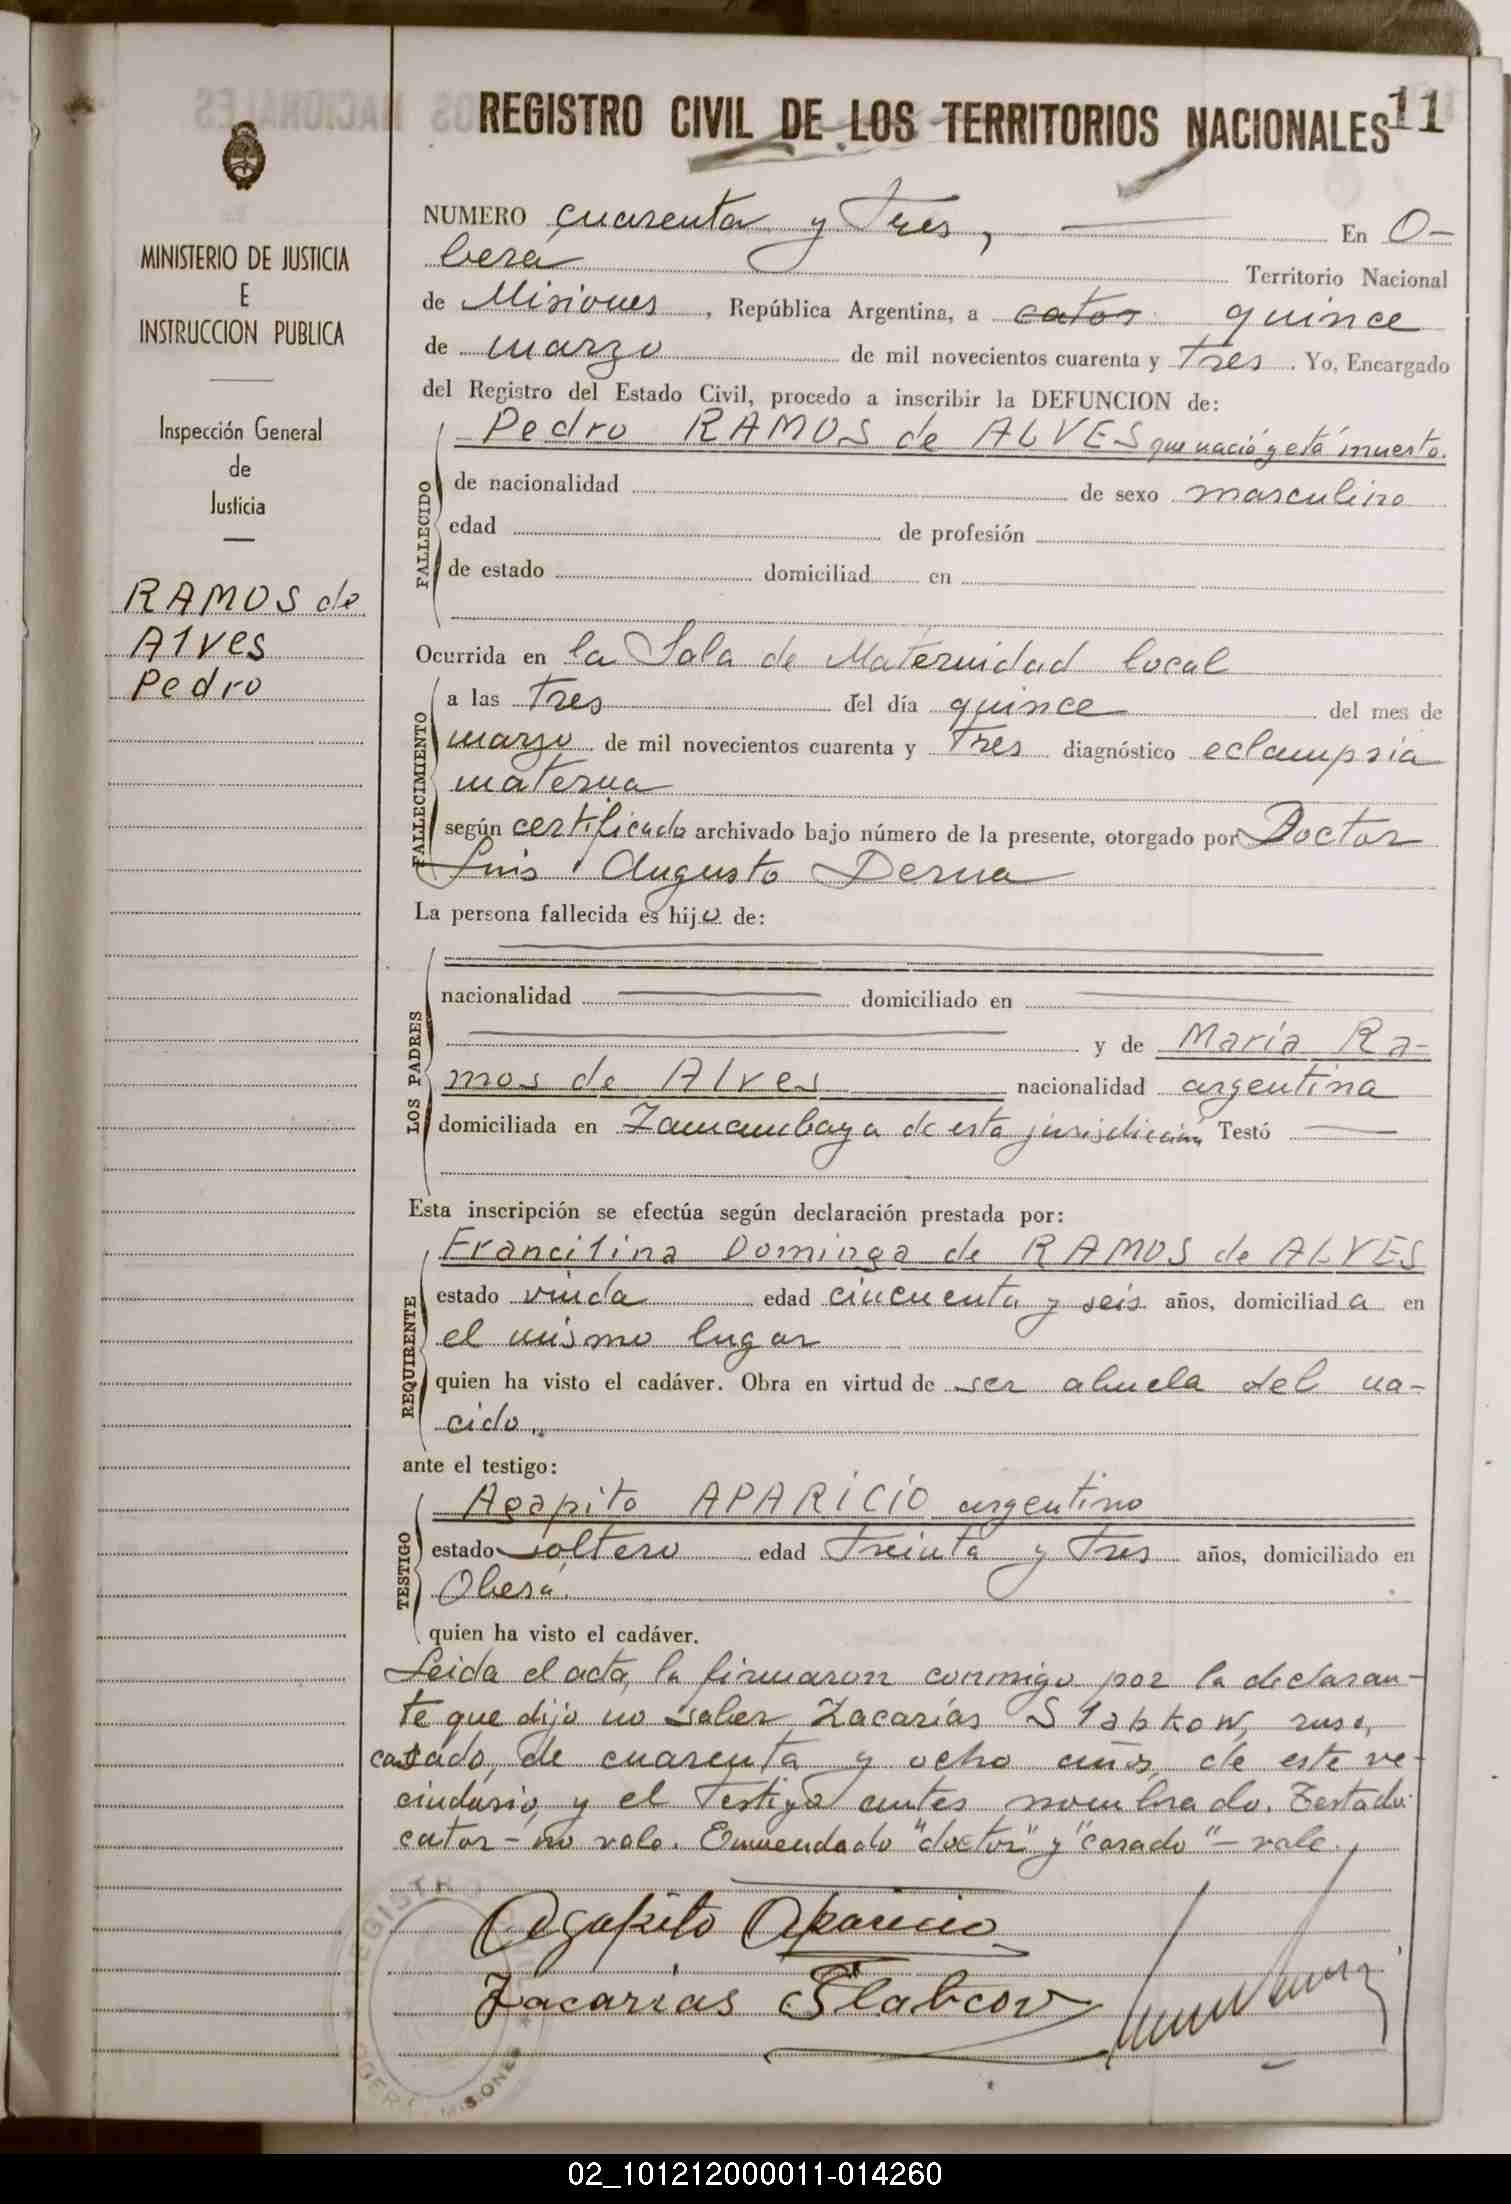 REGISTRO CIVIL DE LOS TERRITORIOS NACIONALES
11
MINISTERIO DE JUSTICIA
E
INSTRUCCION PUBLICA
Inspección General
de
Justicia
RAMOS de
Alves
Pedro
NUMERO cuarenta y Tres, En O-
berá Territorio Nacional
de Misiones, República Argentina, a cator quince
de marzo de mil novecientos cuarenta y Tres. Yo, Encargado
del Registro del Estado Civil, procedo a inscribir la DEFUNCION de:
Pedro RAMOS de ALVES que nació y está muerto.
FALLECIDO
de nacionalidad de sexo masculino
edad de profesión
de estado domiciliad en
Ocurrida en la Sala de Maternidad local
FALLECIMIENTO
a las Tres del día quince del mes de
marzo de mil novecientos cuarenta y Tres diagnóstico eclampsia
materna
según certificado archivado bajo número de la presente, otorgado por Doctor
Luis Augusto Derna
La persona fallecida es hijo de:
LOS PADRES
nacionalidad domiciliado en
y de María Ra-
mos de Alves nacionalidad argentina
domiciliada en de esta jurisdicción Testó
Esta inscripción se efectúa según declaración prestada por:
REQUIRENTE
Francilina Dominga de RAMOS de ALVES
estado viuda edad cincuenta y seis años, domiciliada en
el mismo lugar
quien ha visto el cadáver. Obra en virtud de ser abuela del na-
cido.
ante el testigo:
TESTIGO
Agapito APARICIO argentino
estado soltero edad Treinta y Tres años, domiciliado en
Oberá.
quien ha visto el cadáver.
Leida el acta, la firmaron conmigo por la declaran-
te que dijo no saber, Zacarías Slabkow, ruso,
casado, de cuarenta y ocho años, de este ve-
cindario, y el Testigo antes nombrado. Testado:
cator - no vale. Enmendado "doctor" y "casado" - vale.
Agapito Aparicio
Zacarias Slabcov
REGISTRO
MISIONES
02_101212000011-014260